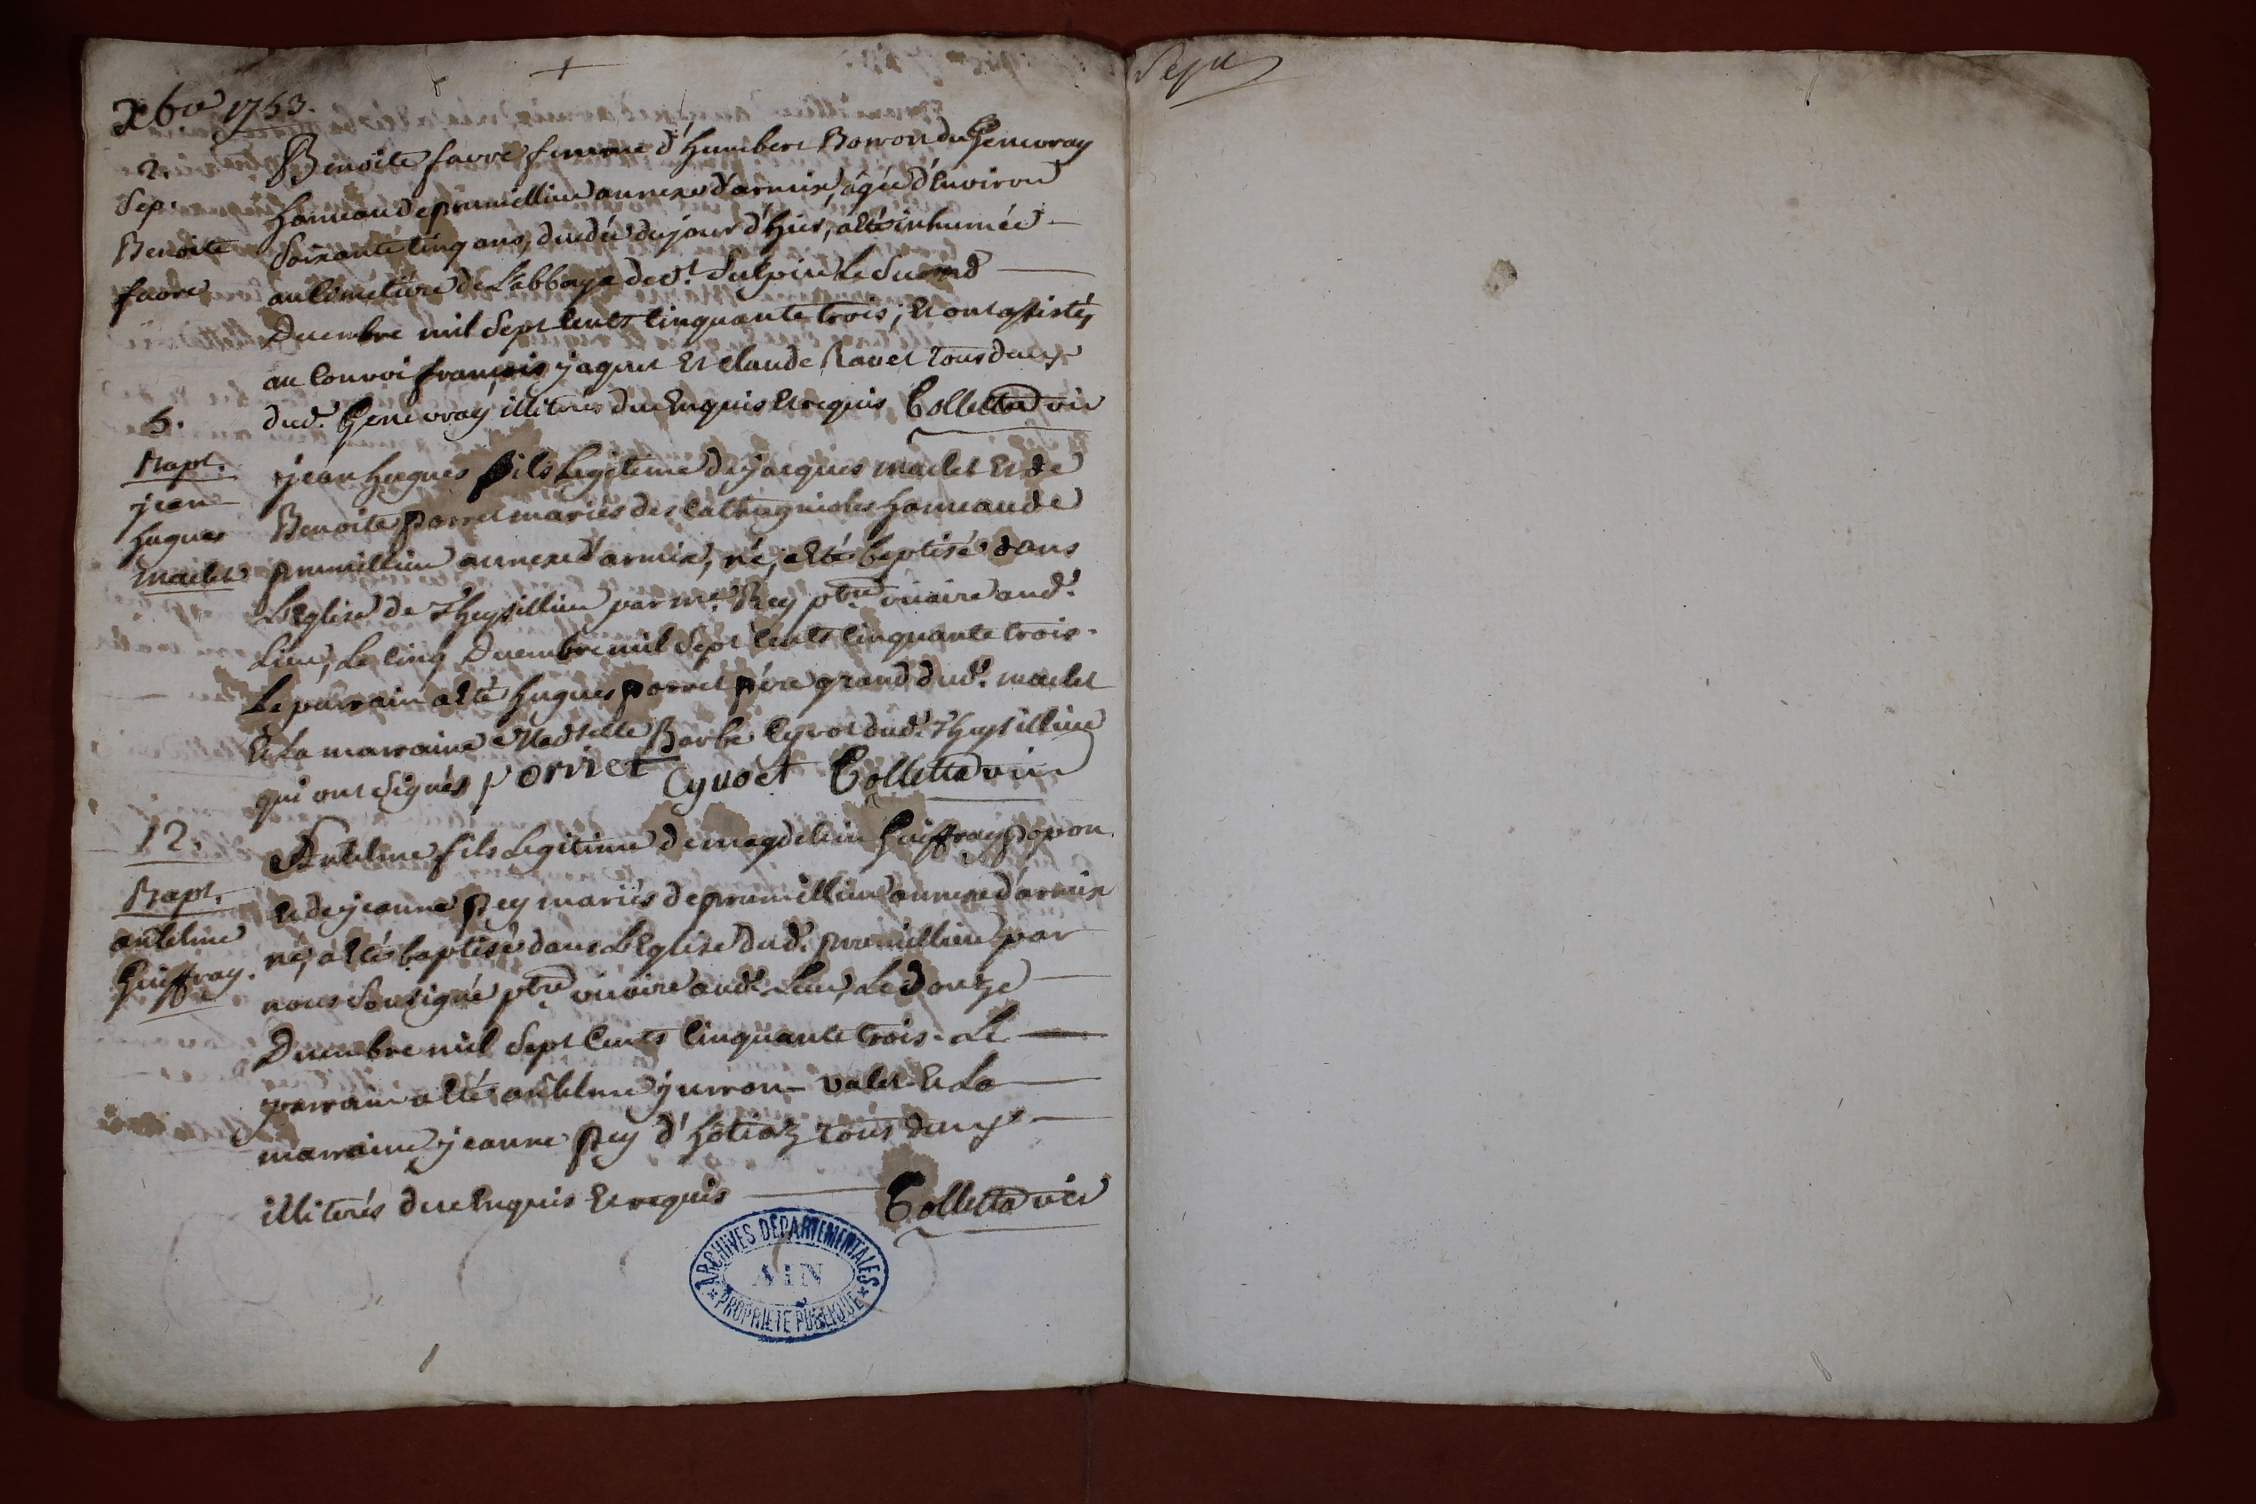 Xbre 1753.
2.
Sep.
Benoite
favre
Benoite favre femme d'humbert Borron du Genevray
hameau de prumillieu annexe d'armix, âgée d'Environ
Soixante Cinq ans, decedée du jour d'hier, a Eté inhumée
au Cimetiere de L'abbaye de St. Sulpice Le Second
Decembre mil Sept Cents Cinquante trois; Et ont assistés
au Convoi françois jaquet Et Claude Ravet tous deux
dud. Genevray illiterés de ce Enquis Et requis Colletta vic
5.
Bapt.
jean
hugues
maclet
jean hugues fils Legitime de jacques maclet Et de
Benoite porret mariés des Cathagnioles hameau de
prumillieu annexe d'armix, né, a Eté baptisé dans
L'Eglise de Theysillieu par mr. Rey ptre vicaire aud.
Lieu, Le Cinq Decembre mil Sept Cents Cinquante trois.
Le parrain a Eté hugues porret père grand dud. maclet
Et La marraine Madselle Barbe Cyvot dud. Theysillieu
qui ont Signés porret Cyvoct Colletta vic
12.
Bapt.
antelme
Guiffray.
Antelme fils Legitime de magdelein Guiffray popon
Et de jeanne Rey mariés de prumillieu annexe d'armix
né, a Etés baptisé dans L'Eglise dud. prumillieu par
nous Sousigné ptre vicaire aud. Lieu, Le Douze
Decembre mil Sept Cents Cinquante trois. Le
parrain a Eté antelme jurron valet Et La
marraine jeanne Rey d'hôtiaz tous deux
illiterés de ce Enquis Et requis Colletta vic
ARCHIVES DÉPARTEMENTALES
AIN
PROPRIÉTÉ PUBLIQUE